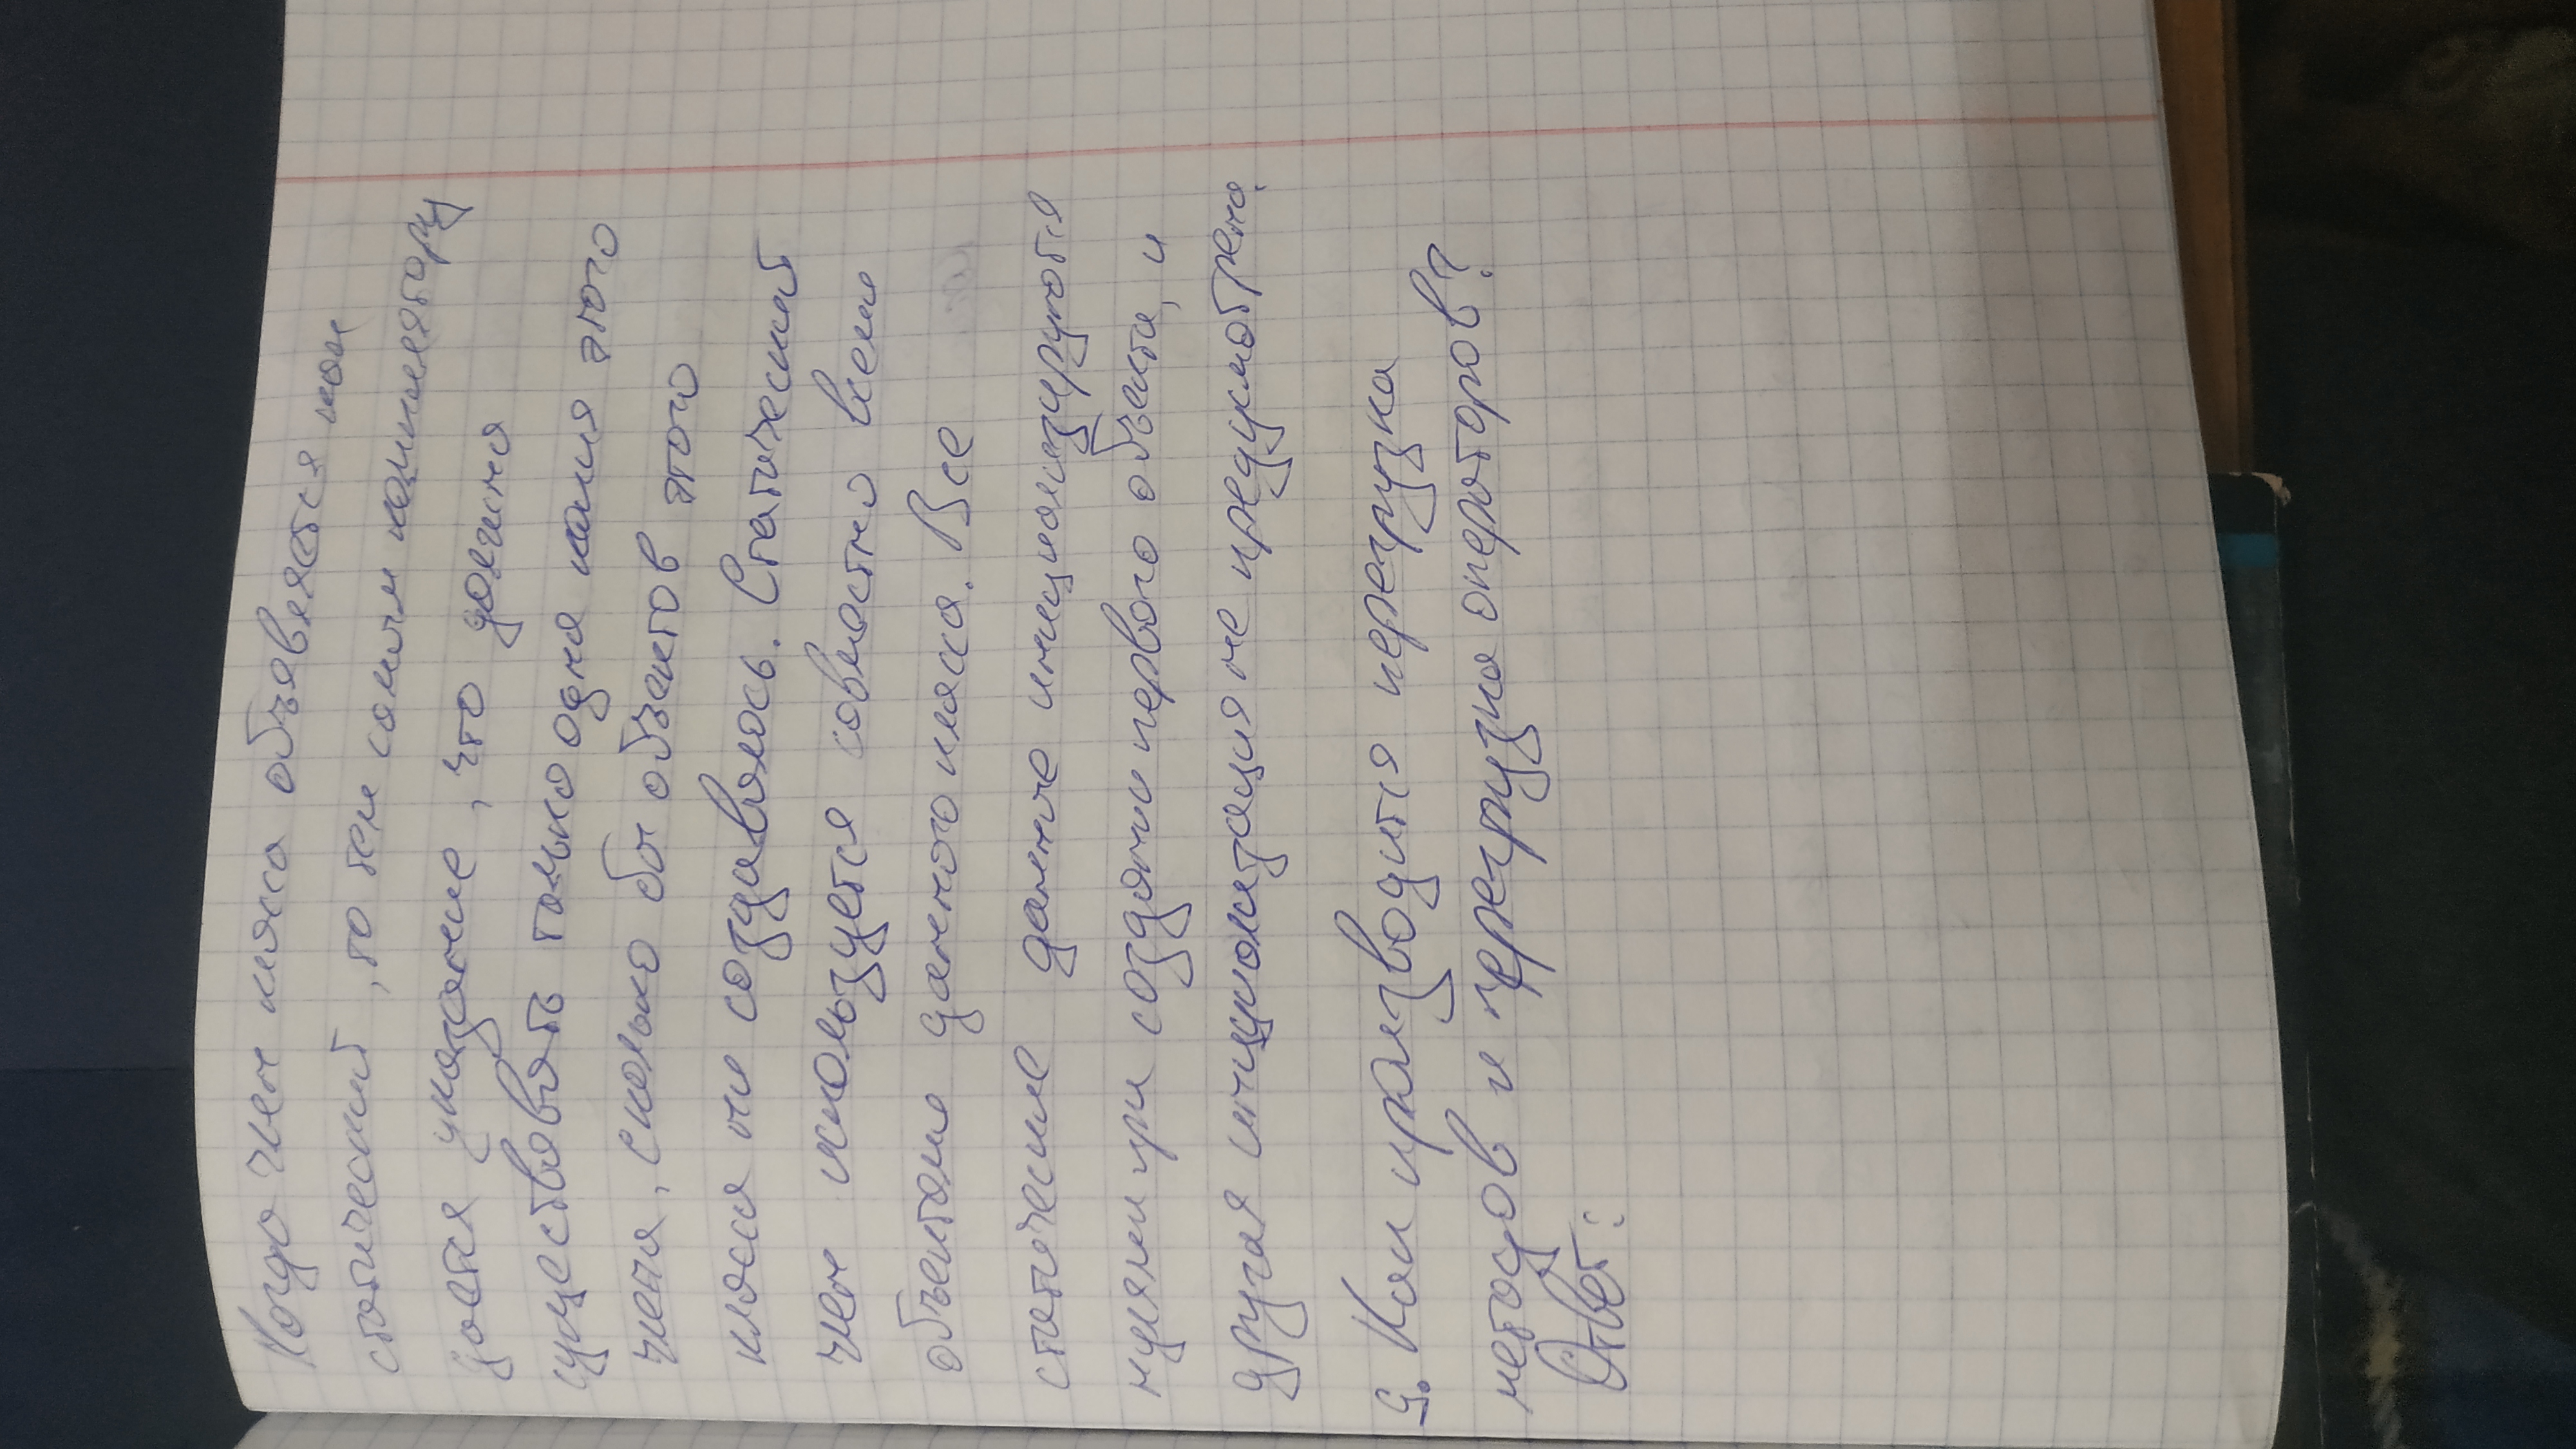 Когда член класса объявляется как
статический, то тем самым компилятору
дается указание, что должна
существовать только одна копия этого
члена, сколько бы объектов этого
класса ни создавалось. Статический
член используется совместно всеми
объектами данного класса. Все
статические данные инициализируются
нулями при создании первого объекта, и
другая инициализация не предусмотрена.
9. Как производится перегрузка
методов и перегрузка операторов?
Ответ: